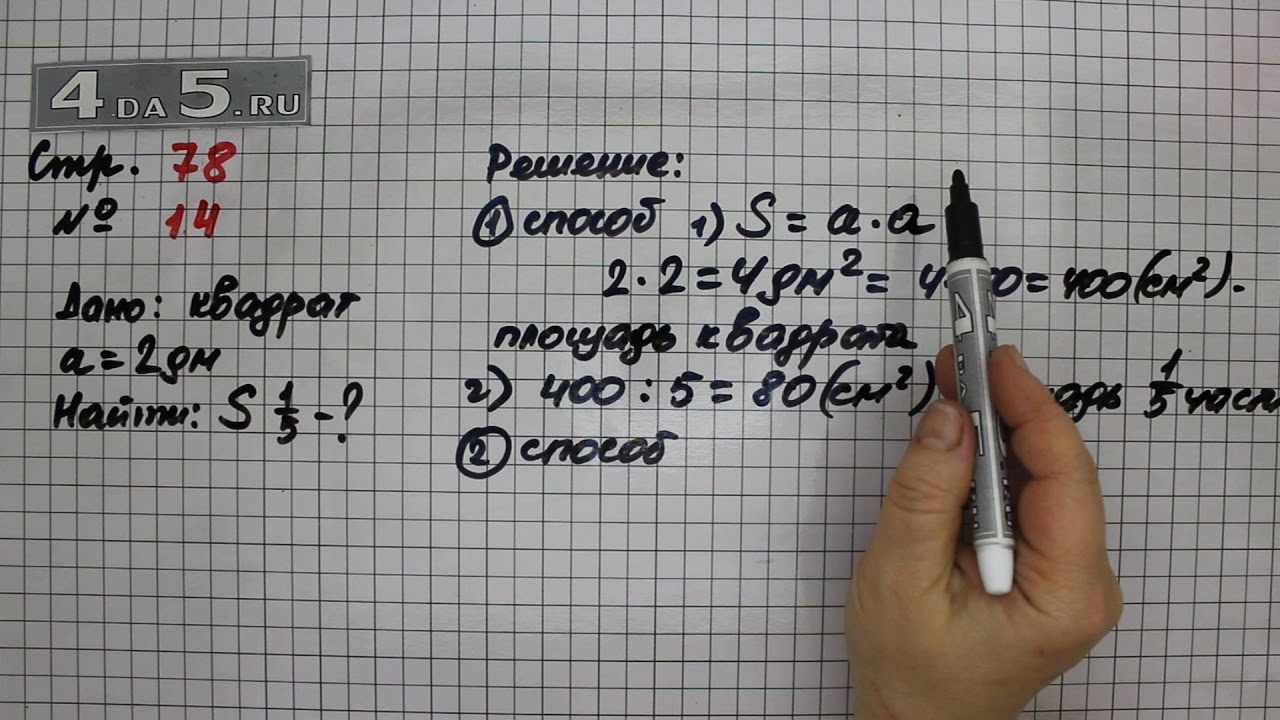 4DA5.RU
Стр. 78
№ 14
Дано: квадрат
a = 2дм
Найти: S 1/5 - ?
Решение:
① способ 1) S = a · a
2 · 2 = 4дм² = 4 0 = 400(см²) -
площадь квадрата
2) 400 : 5 = 80(см²) 1/5 части
② способ